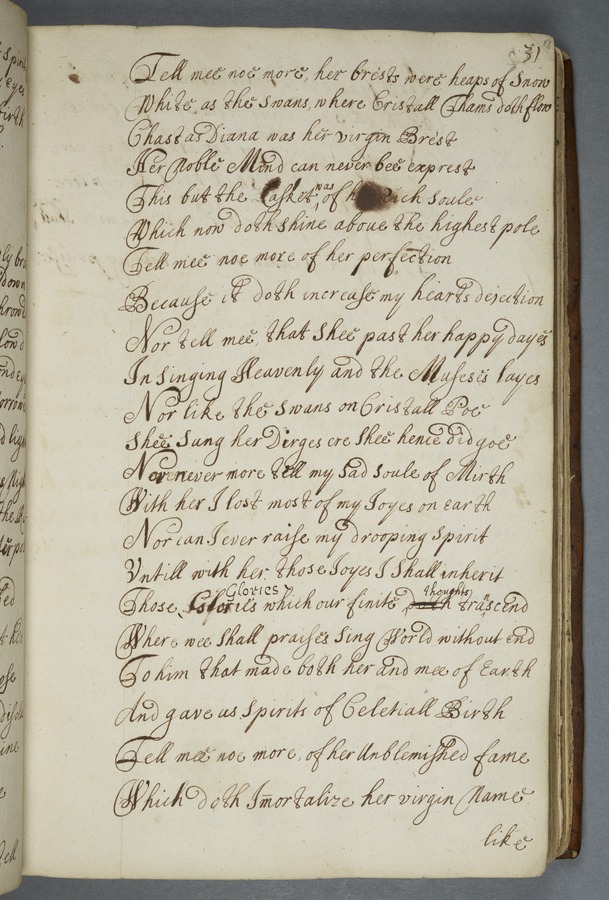 31
Tell mee noe more, her brests were heaps of Snow
White as the swans, where Cristall Thams doth flow
Chast as Diana was her virgin Brest
Her Noble Mind can never bee exprest
This but the Casket was of h Rich soule
Which now doth shine aboue the highest pole
Tell mee noe more of her perfection
Because it doth increase my hearts dejection
Nor tell mee, that Shee past her happy dayes
In singing Heavenly and the Museses layes
Nor like the swans on Cristall Poe
Shee Sung her Dirges ere Shee hence did goe
Never never more tell my Sad Soule of Mirth
With her I lost most of my Joyes on earth
Nor can I ever raise my drooping Spirit
Untill with her, those Joyes I Shall inherit
Glories thoughts
Those Glories which our finite trāscend
Where wee Shall praises Sing World without end
To him that made both her and mee of Earth
And gave us Spirits of Celetiall Birth
Tell mee noe more, of her Unblemished fame
Which doth Im̄ortalize her virgin Name
like